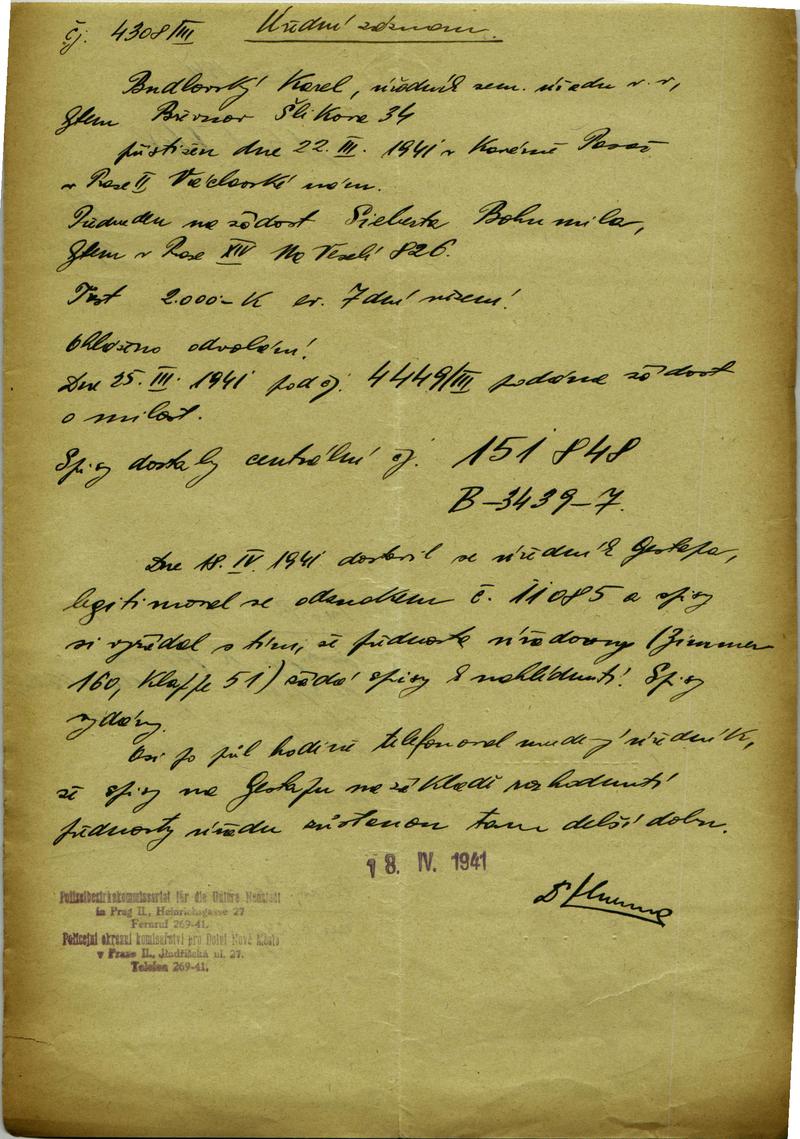 čj. 4308/III Úřední záznam.
Budlovský Karel, úředník zem. úřadu v. v.,
bytem Břevnov Šlikova 34
přistižen dne 22. III. 1941 v Kavárně Passáž
v Praze II Václavské nám.
Předveden na žádost Sieberta Bohumila,
bytem v Praze XIV Na Veselí 826.
Trest 2.000– K ev. 7 dní vězení.
Ohlášeno odvolání!
Dne 25. III. 1941 pod čj. 4449/III podána žádost
o milost.
Spisy dostaly centrální čj. 151848
B–3439–7.
Dne 18. IV. 1941 dostavil se úředník Gestapa,
legitimoval se odznakem č. 11085 a spisy
si vyžádal s tím, že přednosta úřadovny (Zimmer
160, Klappe 51) žádá spisy k nahlédnutí. Spisy
vydány.
Asi po půl hodině telefonoval úředník,
že spisy na Gestapu na základě rozhodnutí
přednosty úřadu zůstanou tam delší dobu.
18. IV. 1941
Dr
Polizeibezirkskommissariat für die Untere Neustadt
in Prag II., Heinrichsgasse 27
Fernruf 269-41.
Policejní okresní komisařství pro Dolní Nové Město
v Praze II., Jindřišská ul. 27.
Telefon 269-41.